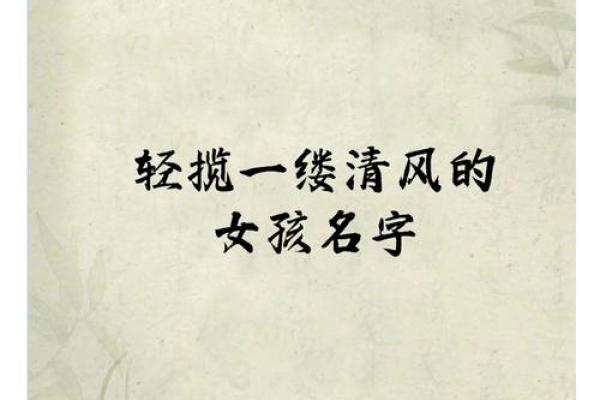 轻揽一缕清风的
女孩名字